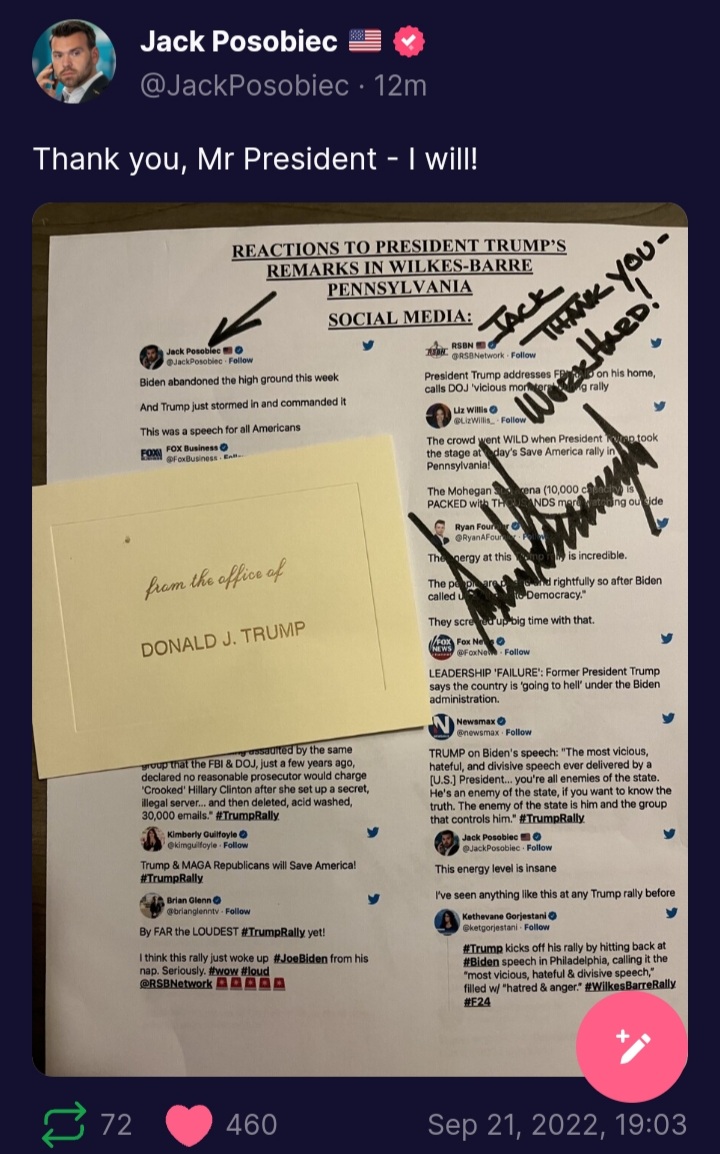 Jack Posobiec
@JackPosobiec · 12m
Thank you, Mr President - I will!
REACTIONS TO PRESIDENT TRUMP'S
REMARKS IN WILKES-BARRE
PENNSYLVANIA
SOCIAL MEDIA:
JACK
THANK YOU-
WORK HARD!
Jack Posobiec
@JackPosobiec · Follow
Biden abandoned the high ground this week
And Trump just stormed in and commanded it
This was a speech for all Americans
FOX
FOX Business
@FoxBusiness ·
from the office of
DONALD J. TRUMP
assaulted by the same
group that the FBI & DOJ, just a few years ago,
declared no reasonable prosecutor would charge
'Crooked' Hillary Clinton after she set up a secret,
illegal server... and then deleted, acid washed,
30,000 emails." #TrumpRally
Kimberly Guilfoyle
@kimguilfoyle · Follow
Trump & MAGA Republicans will Save America!
#TrumpRally
Brian Glenn
@brianglenntv · Follow
By FAR the LOUDEST #TrumpRally yet!
I think this rally just woke up #JoeBiden from his
nap. Seriously. #wow #loud
@RSBNetwork
RSBN
@RSBNetwork · Follow
President Trump addresses on his home,
calls DOJ 'vicious rally
Liz Willis
@LizWillis_ · Follow
The crowd went WILD when President Trump took
the stage at Save America rally in
Pennsylvania!
The Mohegan (10,000 is
PACKED with
Ryan
The energy at this is incredible.
The people are and rightfully so after Biden
called Democracy."
They screwed up big time with that.
FOX
NEWS
Fox News
@FoxNews · Follow
LEADERSHIP 'FAILURE': Former President Trump
says the country is 'going to hell' under the Biden
administration.
N
Newsmax
@newsmax · Follow
TRUMP on Biden's speech: "The most vicious,
hateful, and divisive speech ever delivered by a
[U.S.] President... you're all enemies of the state.
He's an enemy of the state, if you want to know the
truth. The enemy of the state is him and the group
that controls him." #TrumpRally
Jack Posobiec
@JackPosobiec · Follow
This energy level is insane
I've seen anything like this at any Trump rally before
Kethevane Gorjestani
@ketgorjestani · Follow
#Trump kicks off his rally by hitting back at
#Biden speech in Philadelphia, calling it the
"most vicious, hateful & divisive speech,"
filled w/ "hatred & anger." #WilkesBarreRally
#F24
72 460 Sep 21, 2022, 19:03